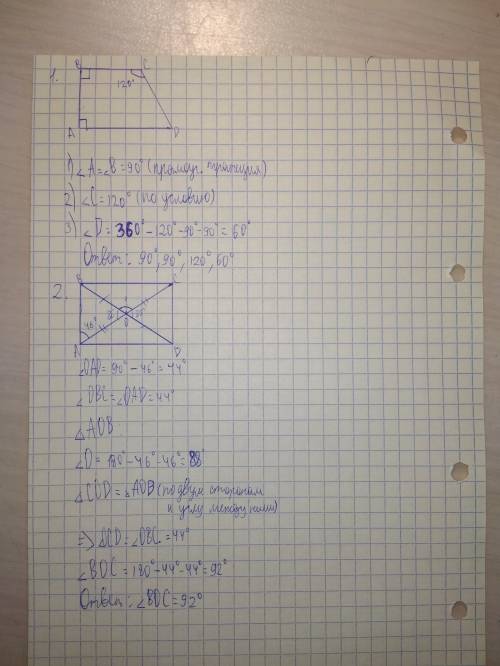 1.
B C
120°
A D
1) ∠A=∠B=90° (прямоуг. трапеция)
2) ∠C=120° (по условию)
3) ∠D=360°-120°-90°-90°=60°
Ответ: 90°, 90°, 120°, 60°
2.
B C
46°
O
A D
∠OAD=90°-46°=44°
∠OBC=∠OAD=44°
△AOB
∠O=180°-46°-46°=88°
△COD=△AOB (по двум сторонам
и углу между ними)
=>
=∠OBC=44°
∠BOC=180°-44°-44°=92°
Ответ: ∠BOC=92°